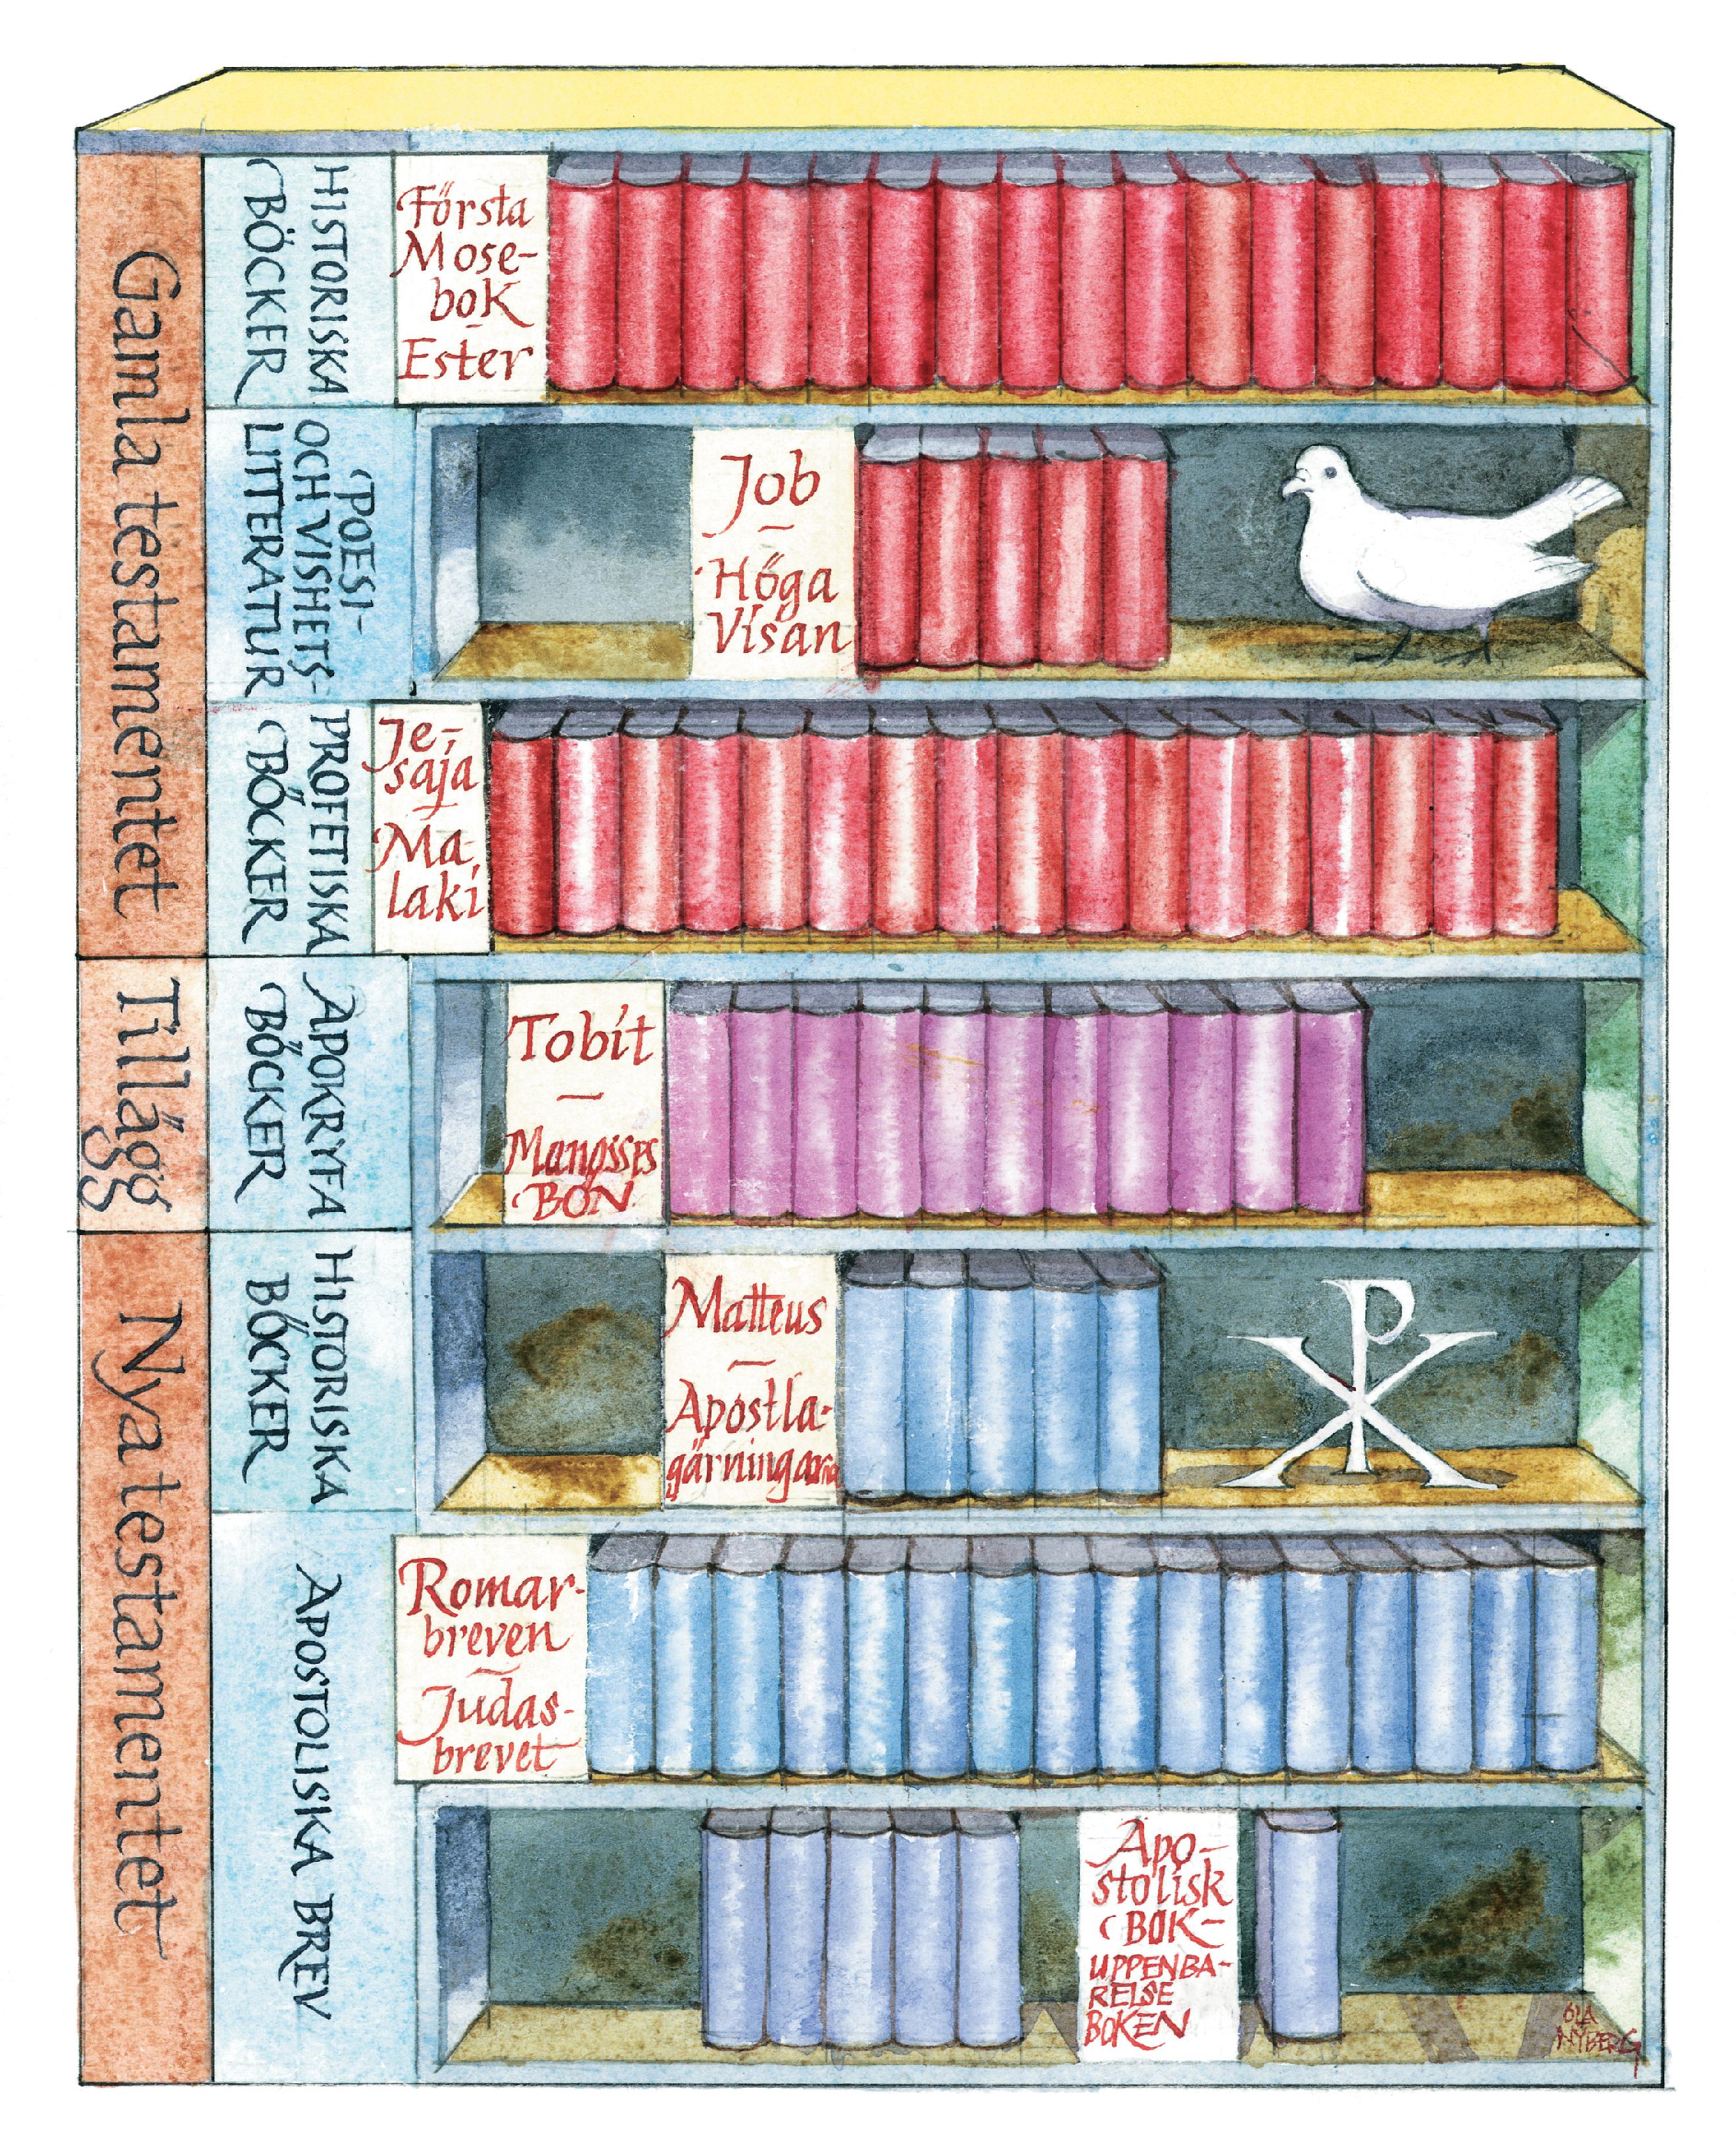 Gamla testamentet
HISTORISKA
BÖCKER
Första
Mose-
bok
-
Ester
POESI-
OCH VISHETS-
LITTERATUR
Job
-
Höga
Visan
PROFETISKA
BÖCKER
Je-
saja
-
Ma-
laki
Tillägg
APOKRYFA
BÖCKER
Tobit
-
Manasses
BÖN
Nya testamentet
HISTORISKA
BÖCKER
Matteus
-
Apostla-
gärningarna
APOSTOLISKA BREV
Romar-
breven
-
Judas-
brevet
Apo-
stolisk
BOK-
UPPENBA-
RELSE
BOKEN
OLA
NYBERG